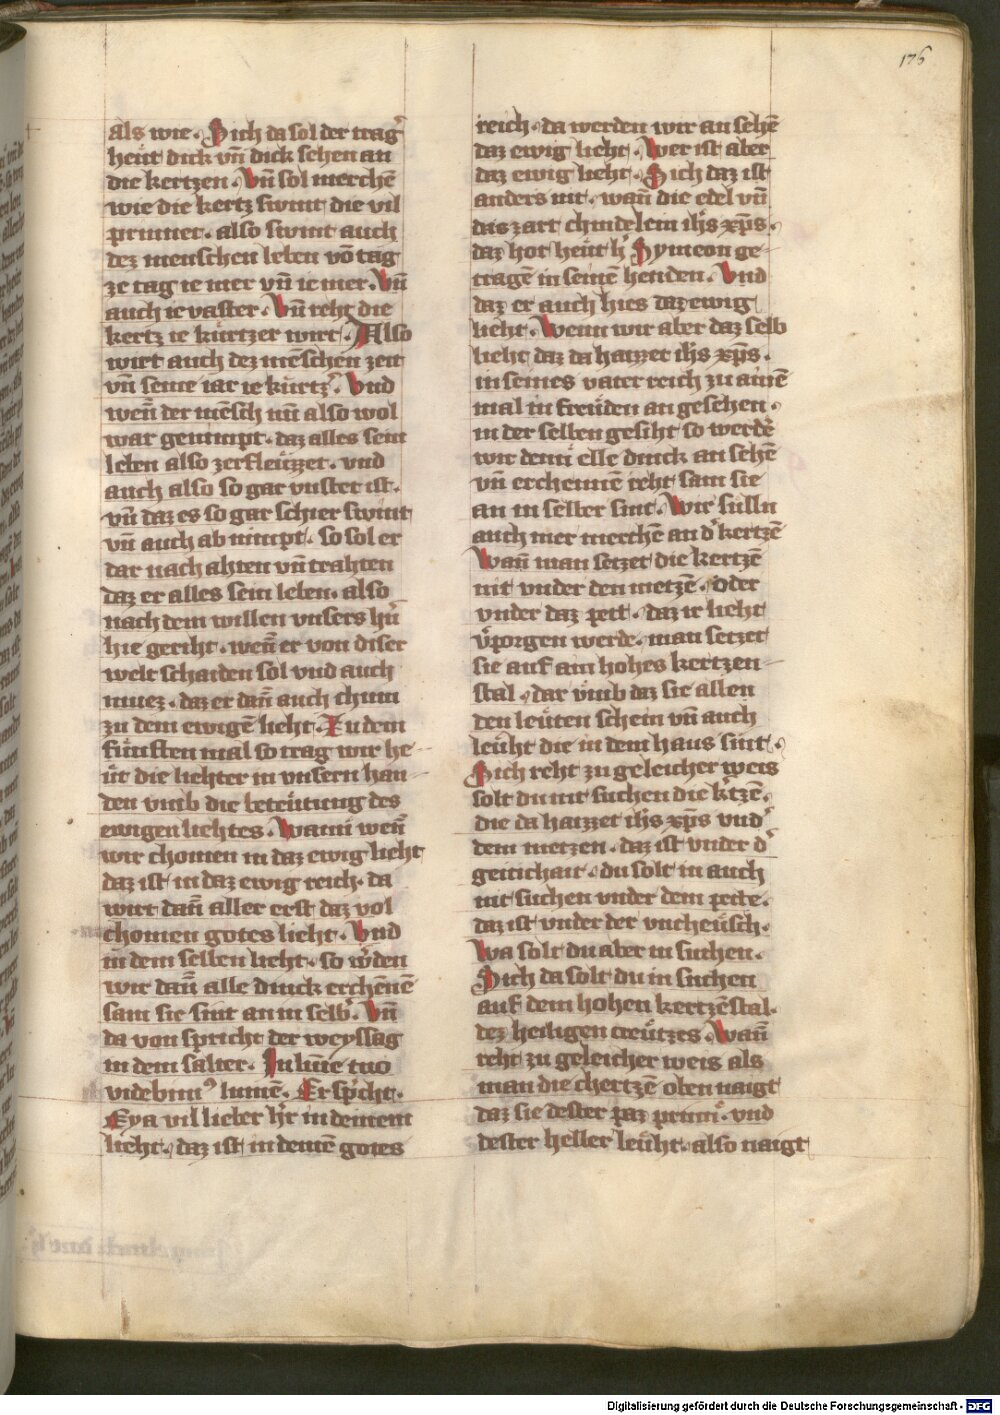 176
als wie. Sich da sol der trag̕
heut dick vn̄ dick sehen an
die kertzen. Vn̄ sol merchē
wie die kertz swint die vil
prinnet. also swint auch
dez menschen leben vō tag
ze tag ie mer vn̄ ie mer. Vn̄
auch ie vaster. Vn̄ reht die
kertz ie kürtzer wirt. Also
wirt auch dez mēschen zeit
vn̄ seine iar ie kurtz̕. Vnd
wen̄ der mēsch nu also wol
war genimpt. daz alles sein
leben also zerfleüzzet. vnd
auch also so gar vnstet ist.
vn̄ daz es so gar schier swint
vn̄ auch ab nimpt. so sol er
dar nach ahten vn̄ trahten
daz er alles sein leben. also
nach dem willen vnsers hr̄n
hie geriht. wen̄ er von diser
welt schaiden sol vnd auch
muez. daz er dan̄ auch chum
zu dem ewigē lieht. Zu dem
fünften mal so trag wir he-
üt die liehter in vnsern han-
den vmb die beteütung des
ewigen liehtes. Wann wen̄
wir chomen in daz ewig lieht
daz ist in daz ewig reich. da
wirt dan̄ aller erst daz vol
chomen gotes lieht. Vnd
in dem selben lieht. so w̕den
wir dan̄ alle dinck erchēnē
sam sie sint an in selb̕. Vn̄
da von spricht der weyssag
in dem salter. In lumīe tuo
videbim⁹ lumē. Er sp̕cht.
Eya vil lieber h̕r in deinem
lieht. daz ist in deinē gotes
reich. da werden wir an sehē
daz ewig lieht. Wer ist aber
daz ewig lieht. Sich daz ist
anders nit. wan̄ die edel vn̄
das zart chindelein ih̄s xp̄s.
daz hot heüt h̕ Symeon ge-
tragē in seinē henden. Vnd
daz er auch hies daz ewig
lieht. Wenn wir aber daz selb
lieht daz da haizzet ih̄s xp̄s.
in seines vater reich zu ainē
mal in freüden an gesehen.
in der selben gesiht so werdē
wir denn elle dinck an sehē
vn̄ erchennē reht sam sie
an in selber sint. Wir sülln
auch mer merchē an d̕ kertzē
Wan̄ man setzet die kertzē
nit vnder den metzē. Oder
vnder daz pett. daz ir lieht
v̕porgen werde. man setzet
sie auf ain hohes kertzen-
stal. dar vmb daz sie allen
den leüten schein vn̄ auch
leüht die in dem haus sint.
Sich reht zu geleicher weis
solt du nit suchen die k̕tzē.
die da haizzet ih̄s xp̄s vnd̕
dem metzen. daz ist vnder d̕
geitichait. du solt in auch
nit suchen vnder dem pette.
daz ist vnder der vncheüsch.
Wa solt du aber in suchen.
Sich da solt du in suchen
auf dem hohen kertzēstal.
dez heiligen creützes. Wan̄
reht zu geleicher weis als
man die chertzē oben naigt
daz sie dester paz prinn̕. vnd
dester heller leüht. also naigt
Digitalisierung gefördert durch die Deutsche Forschungsgemeinschaft - DFG